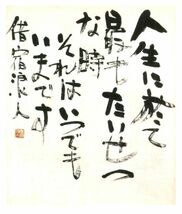 人生に於て
最もたいせつ
な時
それはいつでも
いまです
借宿浪人